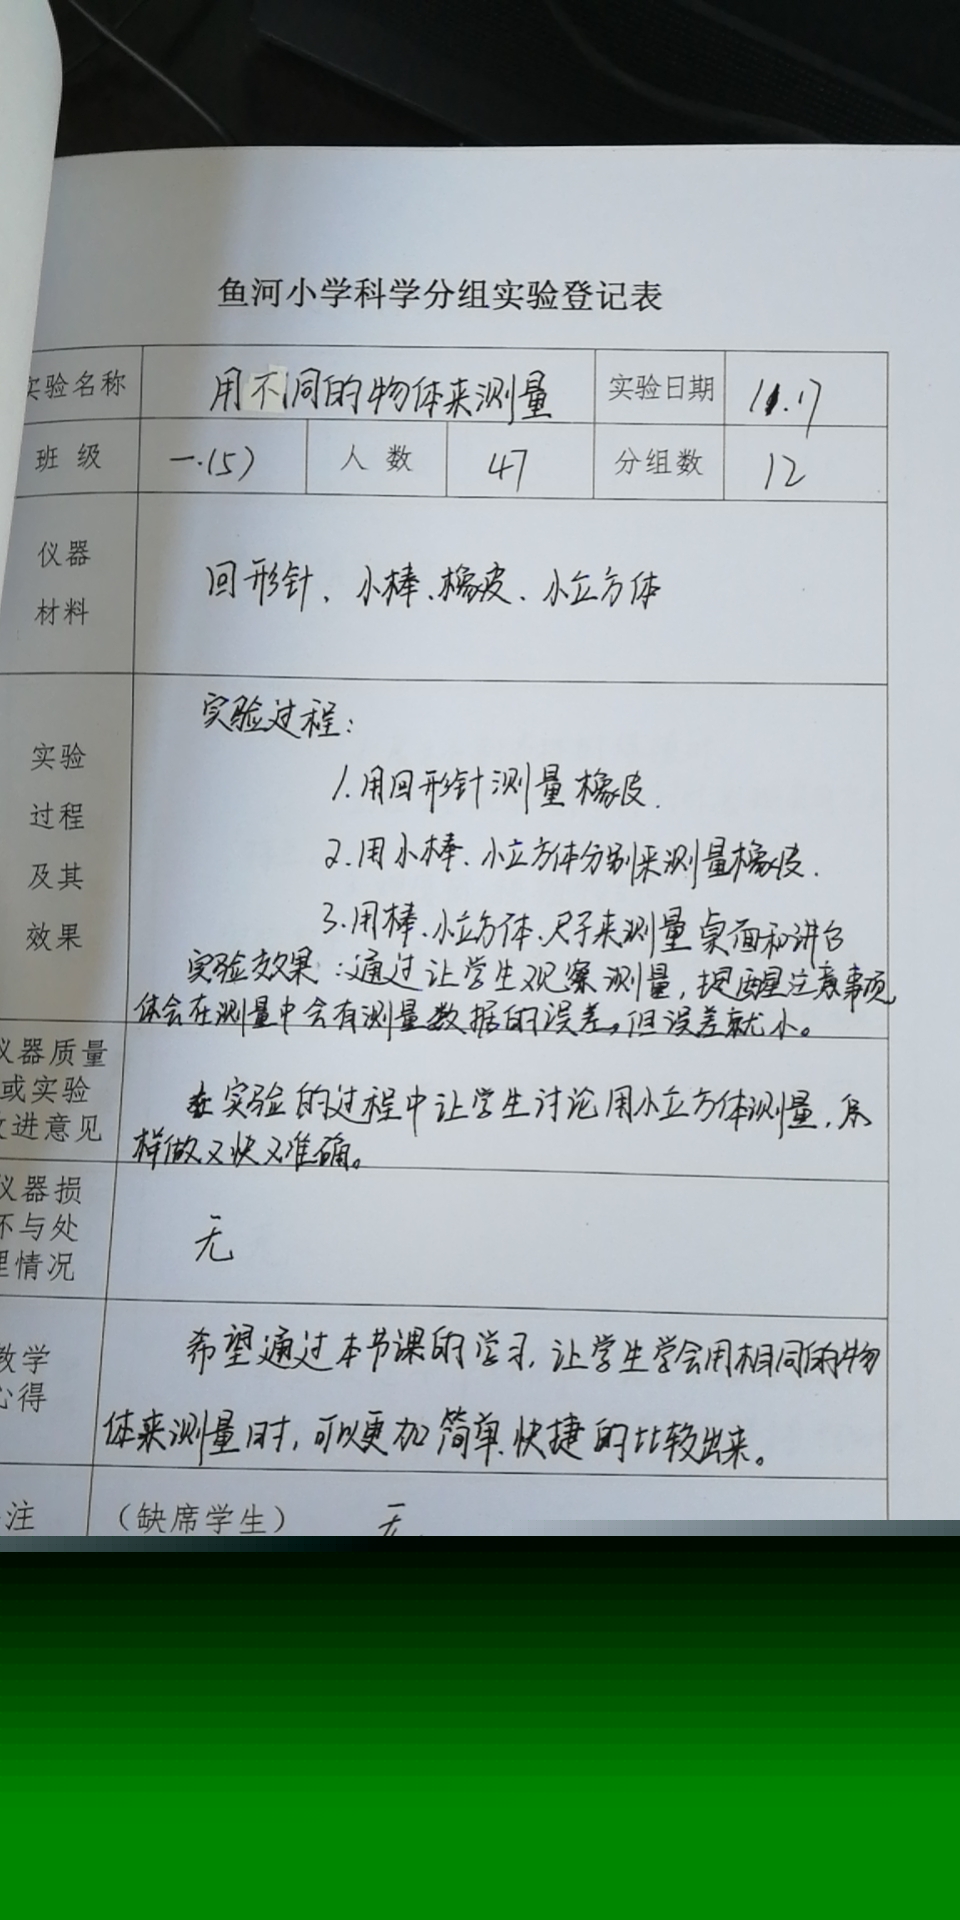 鱼河小学科学分组实验登记表
实验名称 用不同的物体来测量 实验日期 11.17
班级 一.(5) 人数 47 分组数 12
仪器
材料
回形针、小棒、橡皮、小立方体
实验
过程
及其
效果
实验过程:
1.用回形针测量橡皮.
2.用小棒、小立方体分别来测量橡皮.
3.用棒、小立方体、尺子来测量桌面和讲台
实验效果:通过让学生观察测量,提醒注意事项
体会在测量中会有测量数据的误差,但误差就小。
仪器质量
或实验
改进意见
在实验的过程中让学生讨论用小立方体测量,
样做又快又准确。
仪器损
坏与处
理情况
无
教学
心得
希望通过本节课的学习,让学生学会用相同的物
体来测量时,可以更加简单、快捷的比较出来。
注 (缺席学生) 无